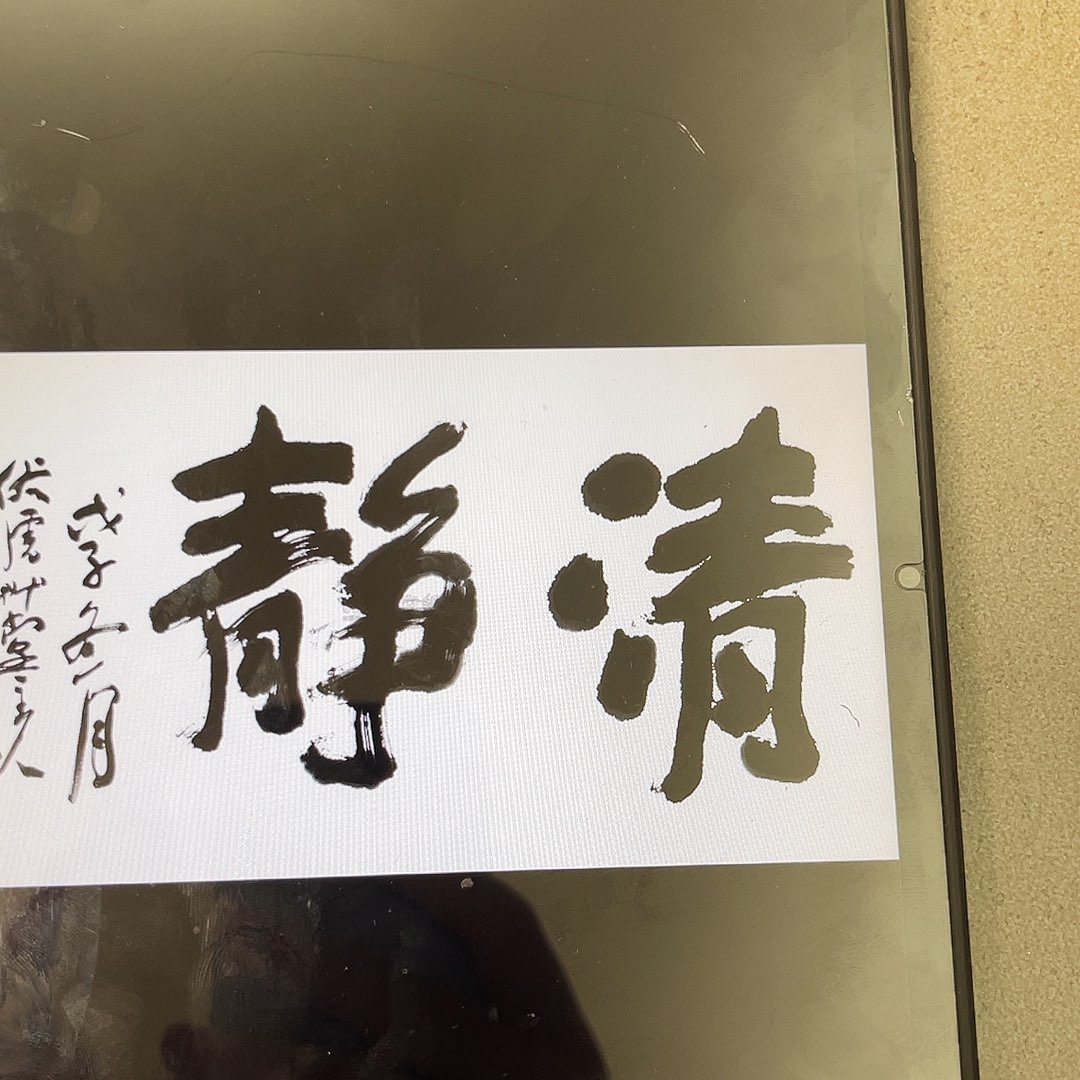 清靜
戊子冬月
伏虎艸堂主人